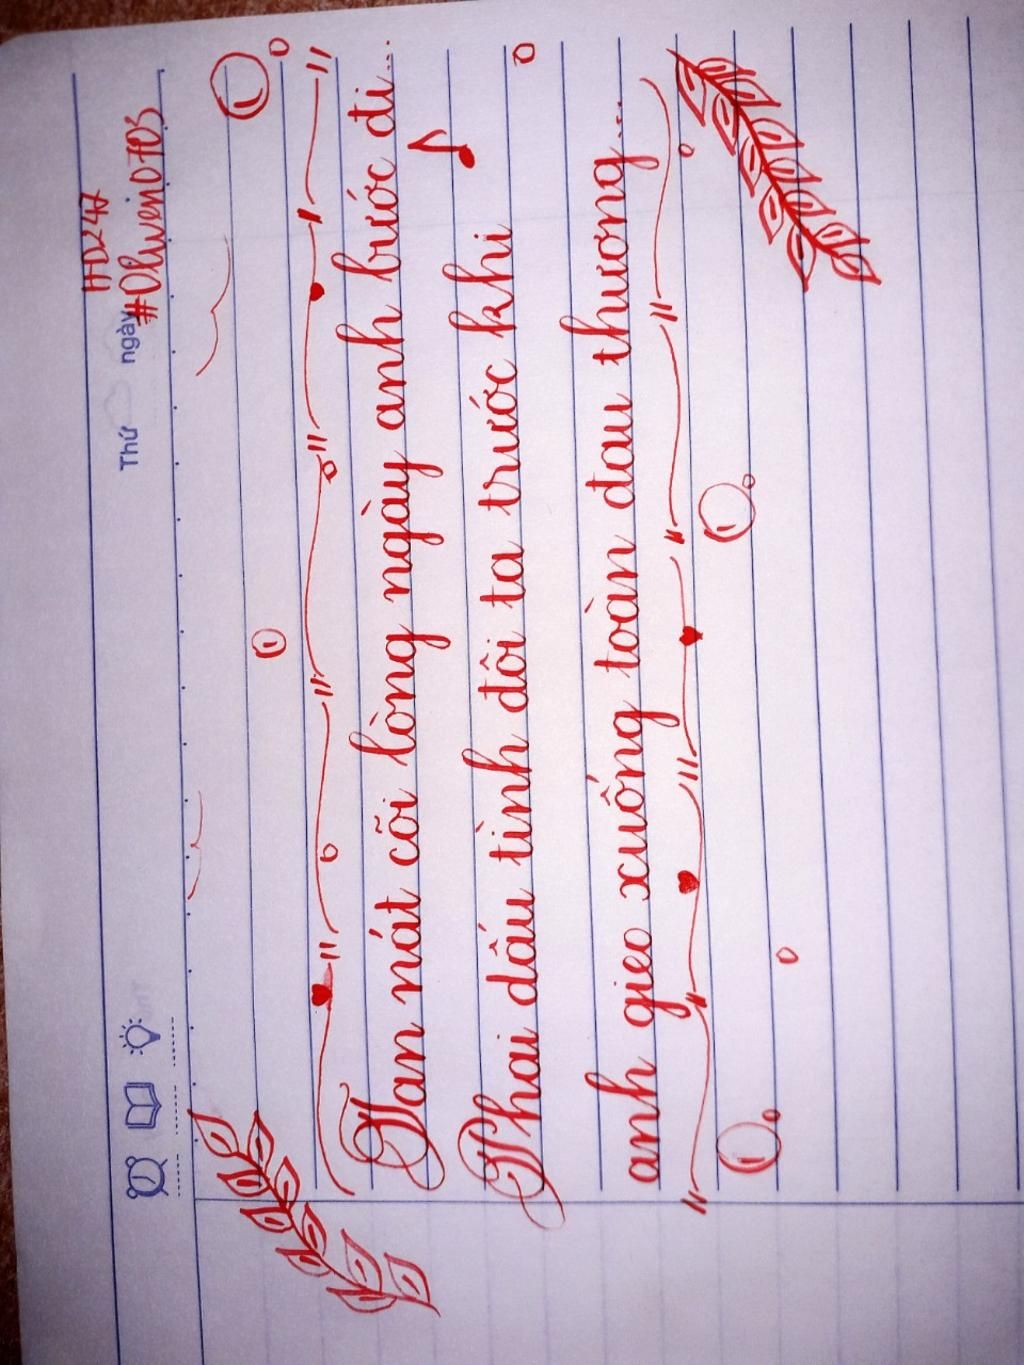 HD247
Thứ ngày #Olweinotes
Tan nát cõi lòng ngày anh bước đi...
Phai dấu tình đôi ta trước khi
anh gieo xuống toàn đau thương...